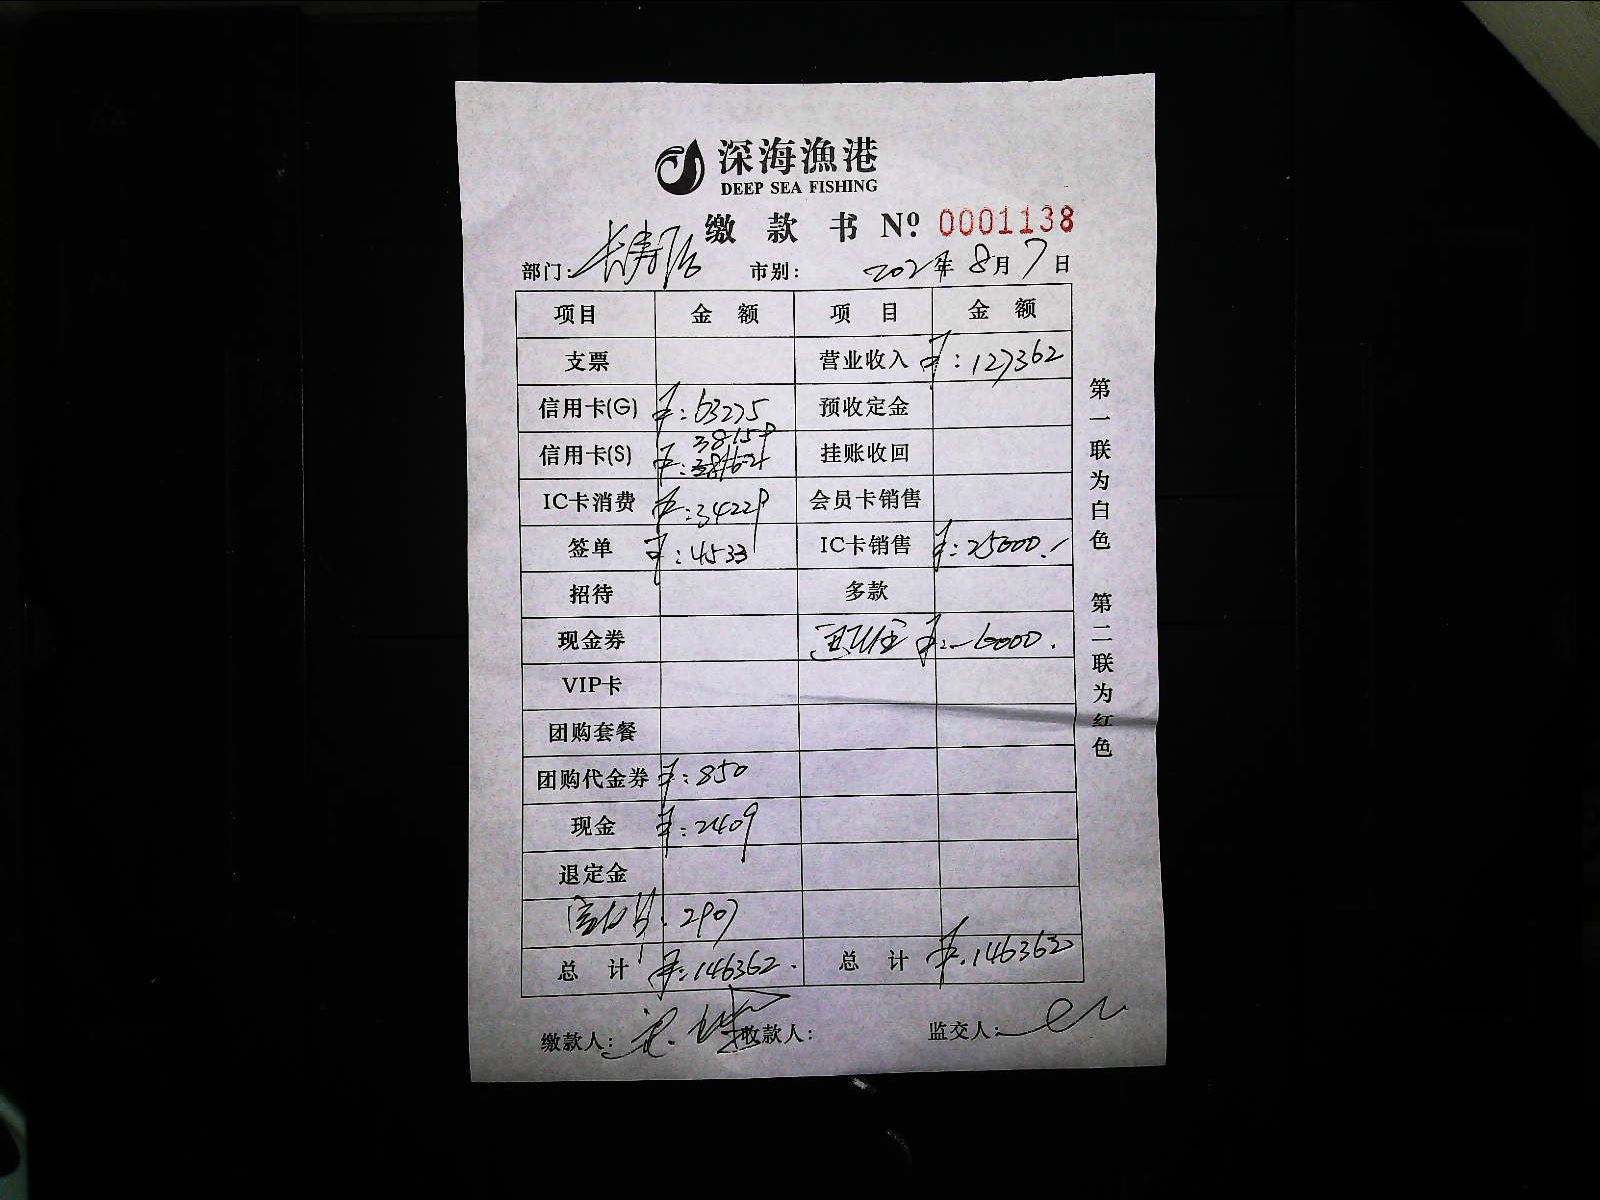 深海漁港
DEEP SEA FISHING
缴款书 Nº 0001138
部门: 长寿 市别: 2021年8月7日
项目 金额 项目 金额
支票 营业收入 ¥:127362
信用卡(G) ¥:63275 预收定金
38159
信用卡(S) ¥: 挂账收回
IC卡消费 ¥:34229 会员卡销售
签单 ¥:4533 IC卡销售 ¥:25000.
招待 多款
现金券 ¥:-6000.
VIP卡
团购套餐
团购代金券 ¥:850
现金 ¥:2409
退定金
2907
总计 ¥:146362. 总计 ¥.146362
缴款人: 收款人: 监交人:
第一联为白色 第二联为红色